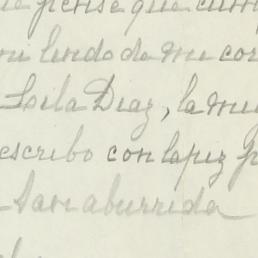 e pense que cum
lindo de mi cor
Loila Diaz, la mu
escribo con lapiz p
tan aburrida